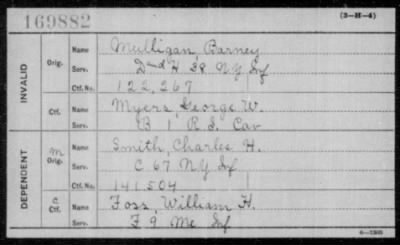 169882
(3-H-4)
INVALID
Orig.
Name Mulligan, Barney
Serv. D and H 38 NY Inf
Ctf. No. 122,267
Ctf.
Name Myers, George W.
Serv. B 1 R.I. Cav
DEPENDENT
M
Orig.
Name Smith, Charles H.
Serv. C 67 NY Inf
Ctf. No. 141,504
C
Ctf.
Name Foss, William H.
Serv. F 9 Me Inf